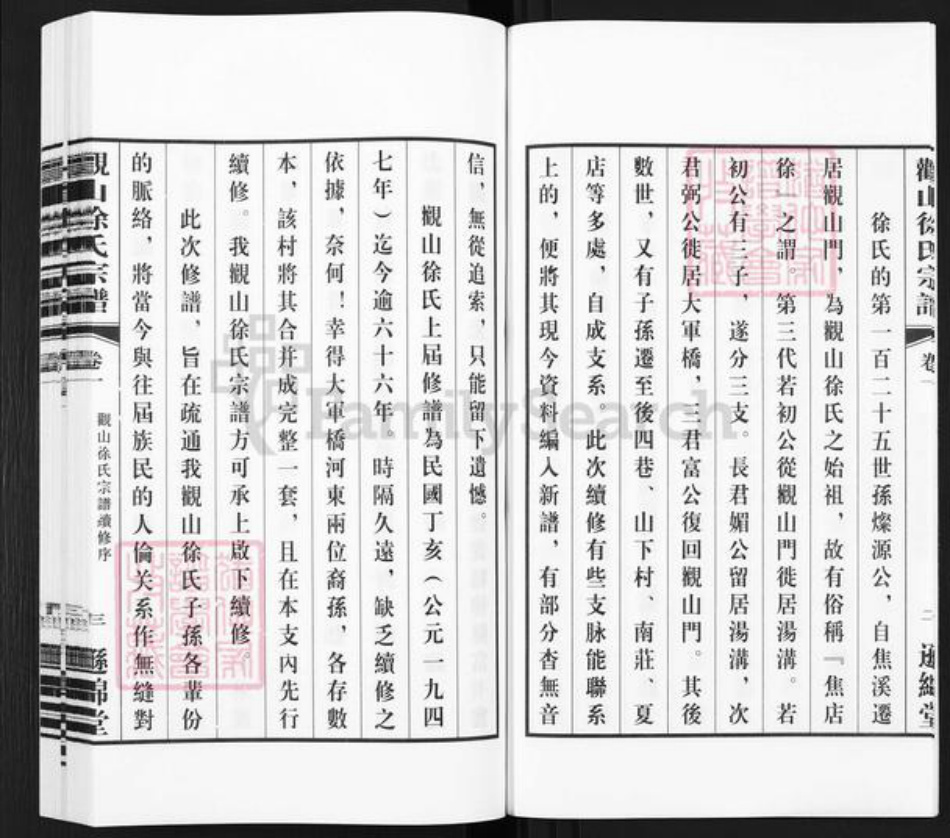 觀山徐氏宗譜
卷一
二
遜繩堂
徐氏的第一百二十五世孫燦源公，自焦溪遷
居觀山門，為觀山徐氏之始祖，故有俗稱『焦店
徐』之謂。第三代若初公從觀山門徙居湯溝。若
初公有三子，遂分三支。長君媚公留居湯溝，次
君弼公徙居大軍橋，三君富公復回觀山門。其後
數世，又有子孫遷至後四巷、山下村、南莊、夏
店等多處，自成支系。此次續修有些支脉能聯系
上的，便將其現今資料編入新譜，有部分杳無音
信，無從追索，只能留下遺憾。
觀山徐氏上屆修譜為民國丁亥（公元一九四
七年）迄今逾六十六年。時隔久遠，缺乏續修之
依據，奈何！幸得大軍橋河東兩位裔孫，各存數
本，該村將其合并成完整一套，且在本支內先行
續修。我觀山徐氏宗譜方可承上啟下續修。
此次修譜，旨在疏通我觀山徐氏子孫各輩份
的脈絡，將當今與往屆族民的人倫关系作無縫對
觀山徐氏宗譜
卷一
觀山徐氏宗譜續修序
三
遜綿堂
FamilySearch